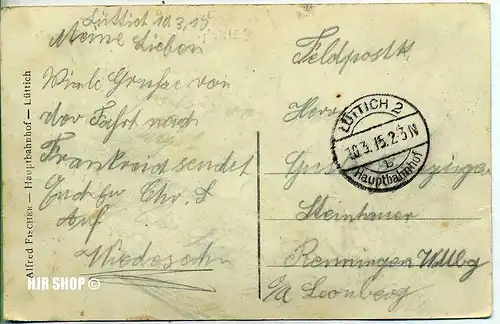 Lüttich 10.3.15
Meine Lieben
Viele Grüsse von
der Fahrt nach
Frankreich sendet
Euch Eu Chr. S
Auf
Wiedesehn
Feldpostk
Herrn
Steinhauer
Renningen Wttbg
O/A Leonberg
LÜTTICH 2
10.3.15.2-3N
b
Hauptbahnhof
Alfred Fischer — Hauptbahnhof — Lüttich
HJR SHOP ©